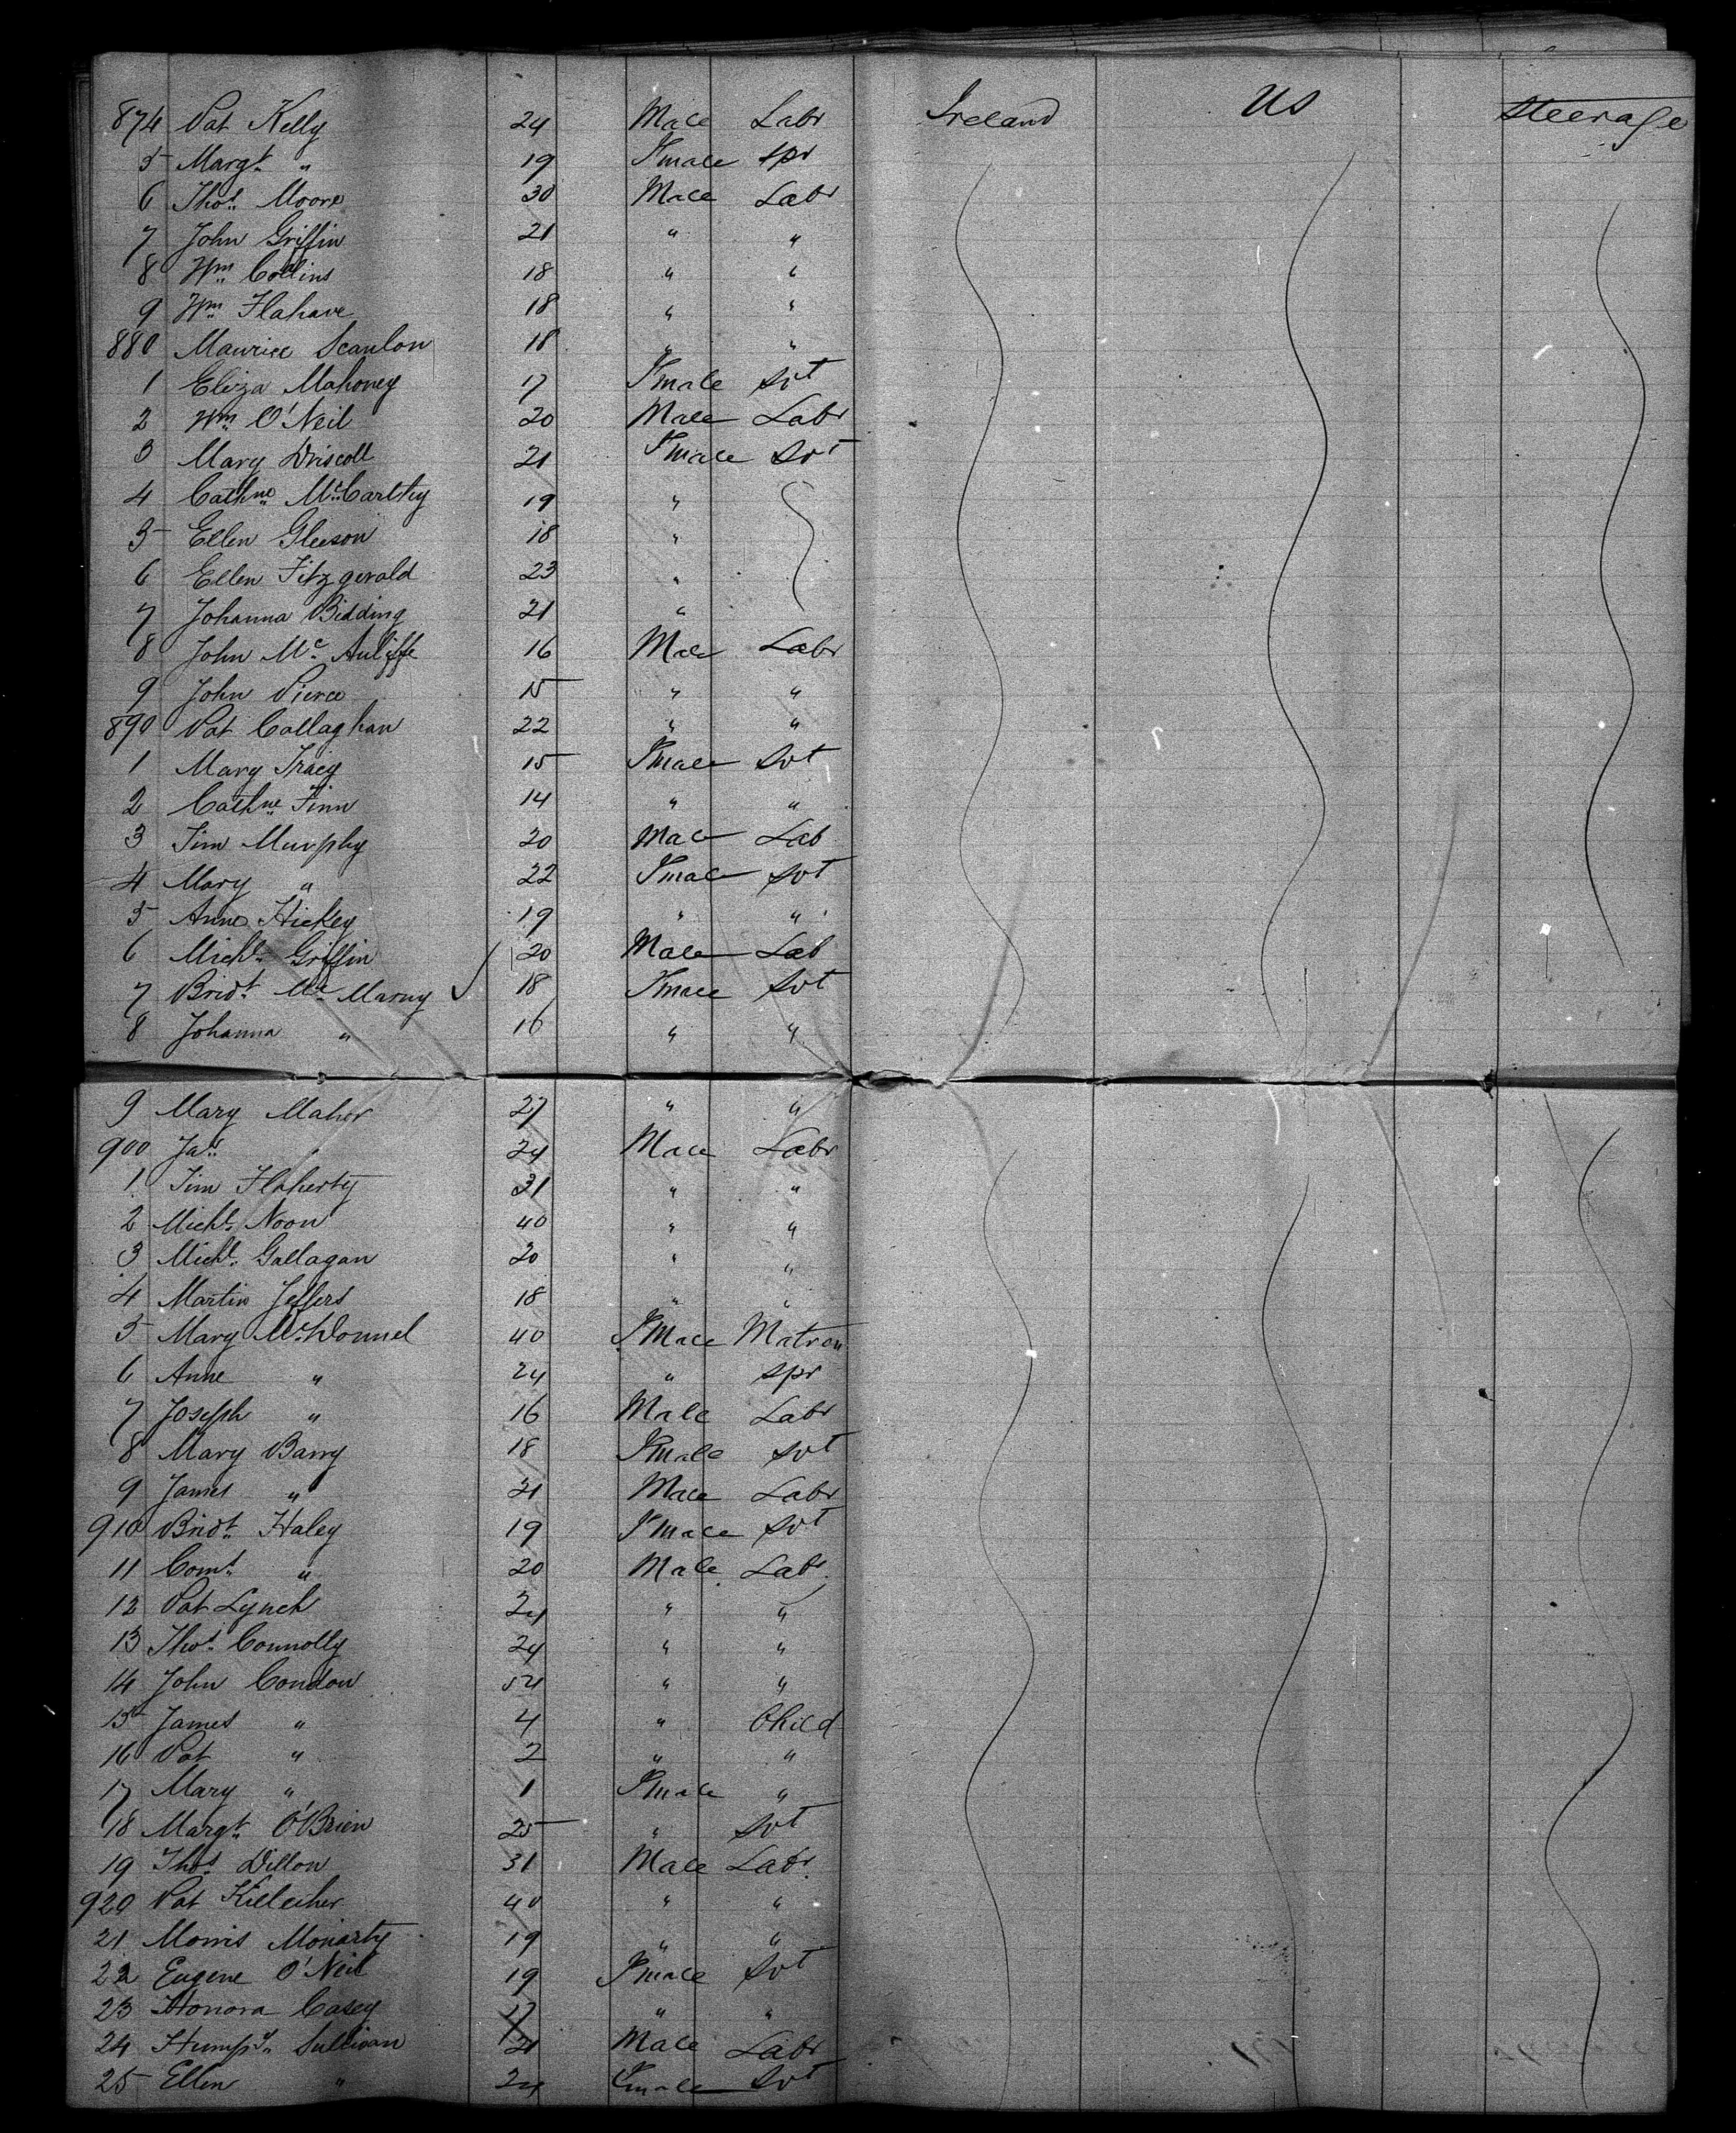 874 Pat Kelly 24 Male Labr Ireland US Steerage
5 Margt. " 19 Fmale Spr
6 Thos. Moore 30 Male Labr
7 John Griffin 21 " "
8 Wm. Collins 18 " "
9 Wm. Flahave 18 " "
880 Maurice Scanlon 18 " "
1 Eliza Mahoney 17 Fmale Svt
2 Wm. O'Neil 20 Male Labr
3 Mary Driscoll 21 Fmale Svt
4 Cathne. McCarthy 19 "
5 Ellen Gleeson 18 "
6 Ellen Fitzgerald 23 "
7 Johanna Bidding 21 "
8 John Mc. Auliffe 16 Male Labr
9 John Pierce 15 " "
890 Pat Callaghan 22 " "
1 Mary Tracy 15 Fmale Svt
2 Cathne. Finn 14 " "
3 Tim Murphy 20 Male Lab
4 Mary " 22 Fmale Svt
5 Anne Hickey 19 " "
6 Michl. Griffin 20 Male Lab
7 Bridt. Mc 18 Fmale Svt
8 Johanna " 16 " "
9 Mary Maher 27 " "
900 Jas. " 24 Male Labr
1 Tim Flaherty 31 " "
2 Michl. Noon 40 " "
3 Michl. Gallagan 20 " "
4 Martin Jeffers 18 " "
5 Mary McDonnel 40 Fmale Matron
6 Anne " 24 " Spr
7 Joseph " 16 Male Labr
8 Mary Barry 18 Fmale Svt
9 James " 21 Male Labr
910 Bridt. Haley 19 Fmale Svt
11 " 20 Male Labr
12 Pat Lynch 24 " "
13 Thos. Connolly 24 " "
14 John Condon " "
15 James " 4 " Child
16 Pat " 2 " "
17 Mary " 1 Fmale "
18 Margt. O'Brien 25 " Svt
19 Thos. Dillon 31 Male Labr
920 Pat Killeher 40 " "
21 Morris Moriarty 19 " "
22 Eugene O'Neil 19 Fmale Svt
23 Honora Casey 17 " "
24 Humpy. Sullivan 21 Male Labr
25 Ellen " 24 Fmale Svt